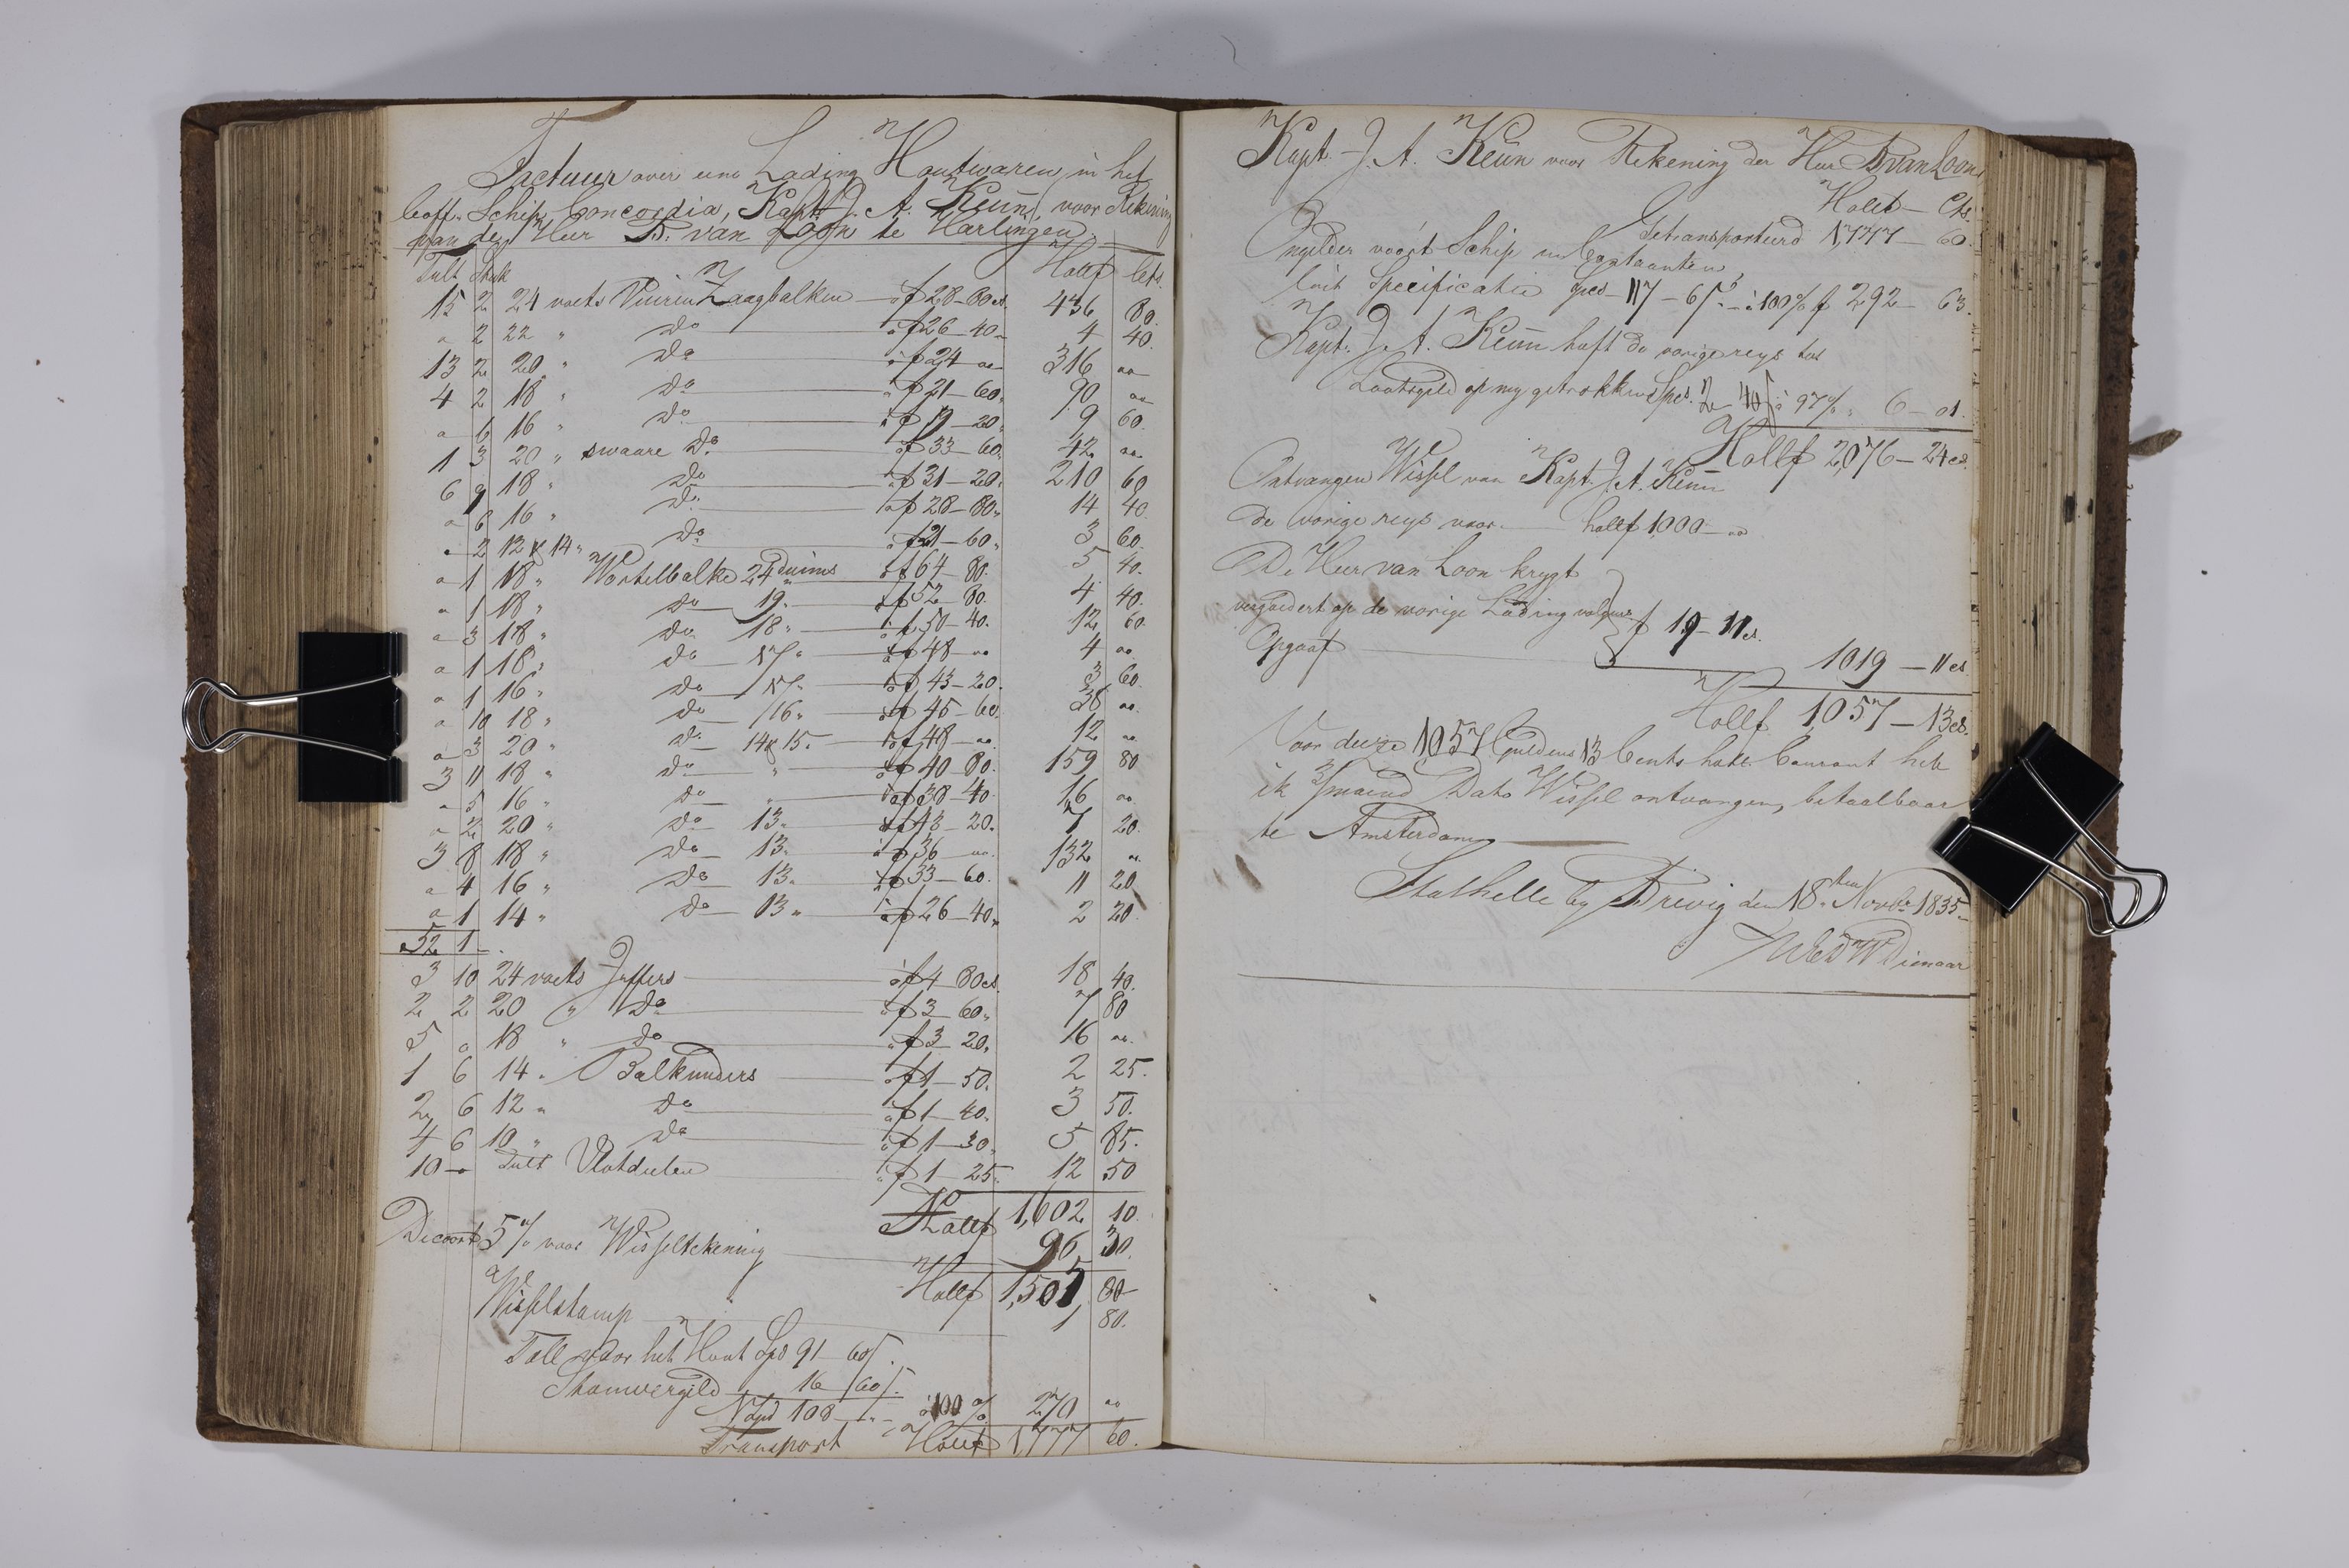 Factuur over eene Lading Houtwaren in het
Coff. Schip Concordia, Kapt. J. A. Keun, voor Rekening
van de Heer B. van Loon te Harlingen.
Tult Stuk Hollf Cts.
15 2 24 voets Vuiren Zaagbalken à f 28-80 cs. 436 80.
" 2 22 " do à f 26-40 " 4 40.
13 2 20 " do à f 24 " 316 "
4 2 18 " do à f 21-60 " 90 "
" 6 16 " do à f 19-20 " 9 60.
1 3 20 " swaare do à f 33-60. 42 "
6 9 18 " do à f 31-20. 210 60
" 6 16 " do à f 28-80 " 14 40.
" 2 12 & 14 " do à f 21-60 " 3 60.
" 1 18 " Wortelbalke 24 duims à f 64-80. 5 40.
" 1 18 " do 19 " à f 52-80. 4 40.
" 3 18 " do 18 " à f 50-40. 12 60.
" 1 18 " do 17 " à f 48 " 4 "
" 1 16 " do 17 " à f 43-20. 3 60.
" 10 18 " do 16 " à f 45-60. 38 "
" 3 20 " do 14 & 15 " à f 48 " 12 "
3 11 18 " do " à f 40-80. 159 80
" 5 16 " do " à f 38-40 16 "
" 2 20 " do 13 " à f 43-20. 7 20.
3 8 18 " do 13 " à f 36 " 132 "
" 4 16 " do 13 " à f 33-60. 11 20
" 1 14 " do 13 " à f 26-40 " 2 20
52 1
3 10 24 voets Juffers à f 4 80 cs. 18 40.
2 2 20 " do à f 3-60 " 7 80
5 " 18 " do à f 3 20 " 16 "
1 6 14 " Balkunders à f 1-50. 2 25.
2 6 12 " do à f 1-40. 3 50.
4 6 10 " do à f 1-30. 5 85.
10 - " Tult Vlotdielen à f 1-25. 12 50
Hollf 1,602 10.
5% voor Wisseltekening 96 30.
Hollf 1,505 80
Wisselstemp 1 80.
Toll voor het Hout Spd 91-60 /.
16 60 /.
Spd 108 - " - à 100% 270 "
Transport Hollf 1,777 60.
Kapt. J. A. Keun voor Rekening der Heer B van Loon
Hollf - Cts.
Getransporteerd 1,777 - 60
Ongelder voor't Schip en Contanten,
luit Specificatie Spes 117-65 à 100% f 292-63.
Kapt. J. A. Keun heft de vorige reys tot
Lootsgeld op my getrokken Spes. 2 - 40 / à 97% " 6-01.
Hollf 2,076-24 cs.
Ontvangen Wissel van Kapt. J. A. Keun
de vorige reys voor hollf 1,000 "
De Heer van Loon krygt
vergoedert op de vorige Lading volgens
Opgaaf f 19-11 cs. 1019-11 cs
Hollf 1,057-13 cs.
Voor deeze 1,057 Guldens 13 Cents holl. Courant heb
ik 3/maend Dato Wissel ontvangen, betaalbaar
te Amsterdam
Stathelle by Brevig den 18 ten Novbr. 1835
Dienaar